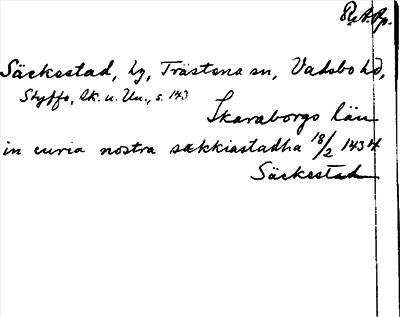 R.A. Pp.
Säckestad, by, Trästena sn, Vadsbo hd,
Styffe, Sk. u. Un., s. 143
Skaraborgs län
in curia nostra sækkiastadha 18/2 1434
Säckestad